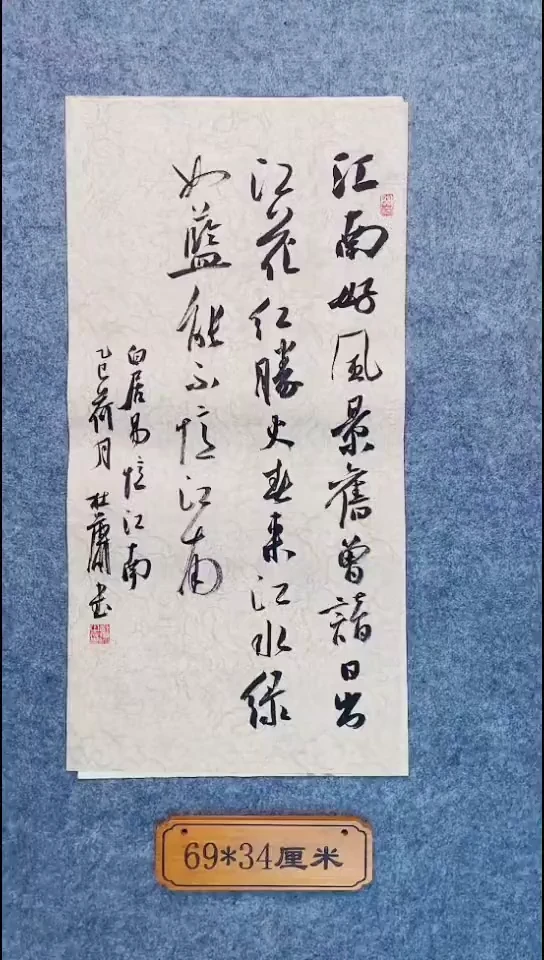 江南好風景舊曾諳日出
江花红勝火春来江水绿
如藍能不憶江南
白居易憶江南
乙巳荷月 杜蕭书
69*34厘米